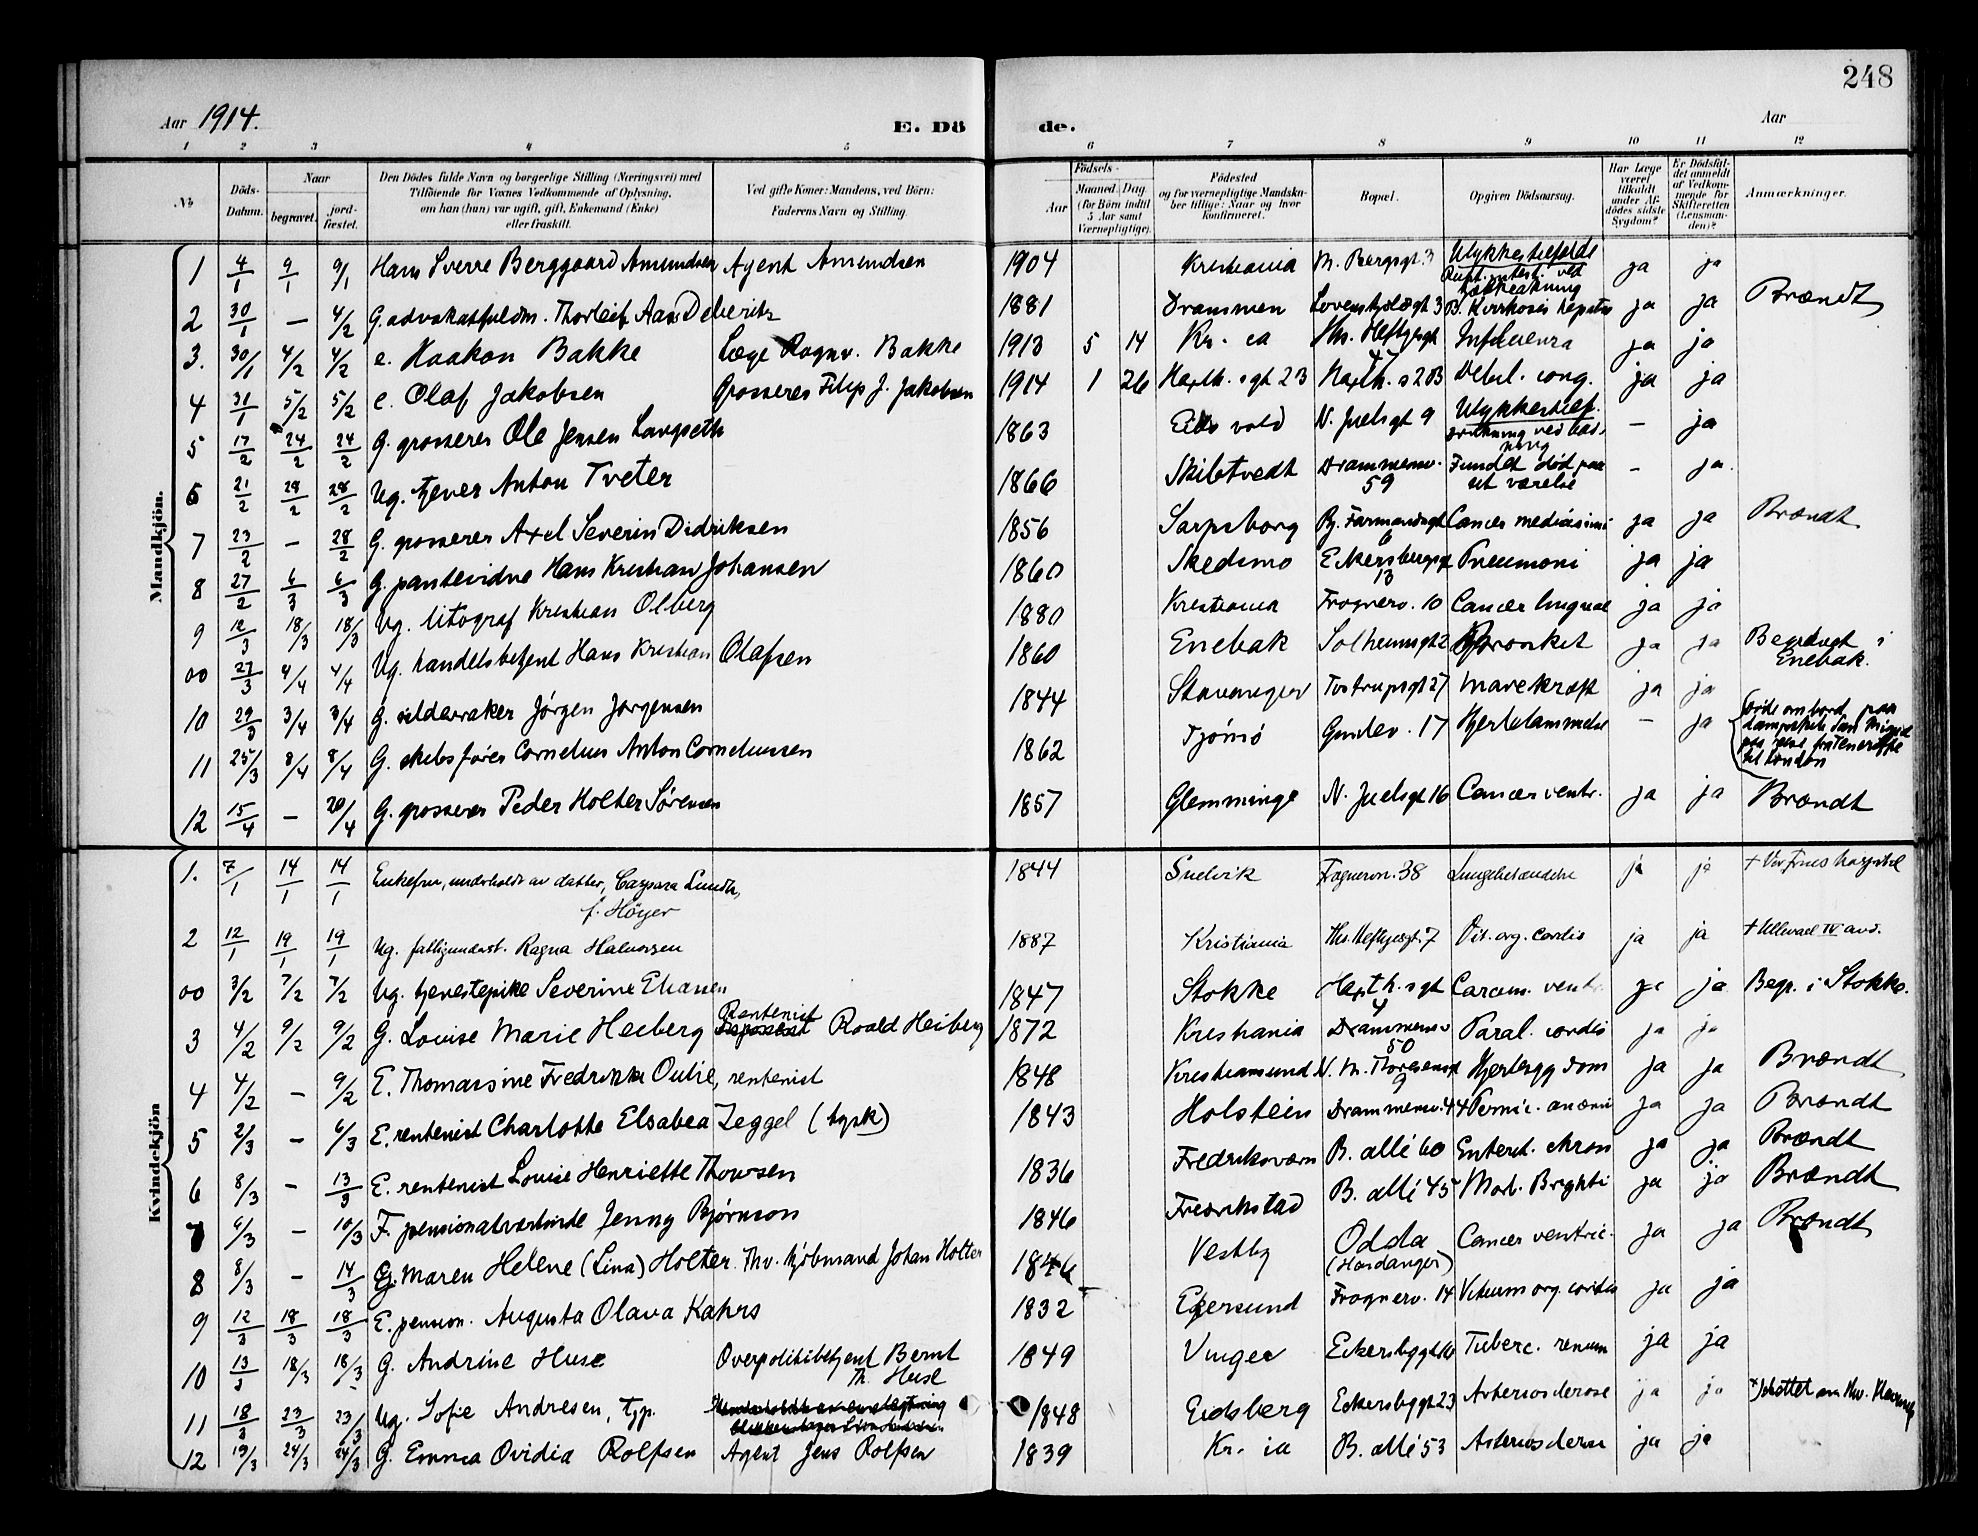 248
Aar 1914.
E. Dö de.
Aar
1 2 3 4 5 6 7 8 9 10 11 12
№
Döds-Datum.
Naar
begravet.
jord-fæstet.
Den Dödes fulde Navn og borgerlige Stilling (Næringsvei) med
Tilföiende for Voxnes Vedkommende af Oplysning,
om han (hun) var ugift, gift, Enkemand (Enke)
eller fraskilt.
Ved gifte Koner: Mandens, ved Börn:
Faderens Navn og Stilling.
Födsels-
Aar
Maaned, Dag
(for Börn indtil
5 Aar samt
Værnepligtige).
Födested
og for værnepligtige Mandskaber tillige: Naar og hvor
konfirmeret.
Bopæl.
Opgiven Dödsaarsag.
Har Læge været tilkaldt under Afdödes sidste Sygdom?
Er Dödsfaldet anmeldt af Vedkommende for Skifteretten (Lensmanden)?
Anmærkninger.
Mandkjön.
1 4/1 9/1 9/1 Hans Sverre Berggaard Amundsen Agent Amundsen 1904 Kristiania M. Bergsgt. 3 Ulykkestilfælde ved ja ja
2 30/1 — 4/2 G. advokatfuldm. Thorleif Aas Deberitz 1881 Drammen Lovenskioldsgt 3 Kirrhosis hepatis ja ja Brændt
3. 30/1 4/2 4/2 e. Haakon Bakke Læge Ragnv. Bakke 1913 5 14 Kr. ia Ths. Heftyesgt 47 Influenza ja ja
4 31/1 5/2 5/2 e. Olaf Jakobsen Grosserer Filip J. Jakobsen 1914 1 26 Haxth. sgt 23 Haxth. s 23 Debil. cong. ja ja
5 17/2 24/2 24/2 G. grosserer Ole Jensen Langseth 1863 Eidsvold N. Juelsgt 9 Ulykkestilf. drukning ved — ja
6 21/2 28/2 28/2 Ug. tjener Anton Tveter 1866 Skibtvedt Drammensv. 59 Fundet död paa sit værelse — ja
7 23/2 — 28/2 G. grosserer Axel Severin Didriksen 1856 Sarpsborg Bj. Farmandsgt 6 Cancer mediastini ja ja Brændt
8 27/2 6/3 6/3 G. pantevidne Hans Kristian Johansen 1860 Skedsmo Eckersbergsgt 13 Pneumoni ja ja
9 12/3 18/3 18/3 Ug. litograf Kristian Olberg 1880 Kristiania Frognerv. 10 Cancer linguae ja ja
00 27/3 4/4 4/4 Ug. handelsbetjent Hans Kristian Olafsen 1860 Enebak Solheimsgt 2 Bronkit ja ja Begravet i Enebak.
10 29/3 3/4 3/4 G. sildevraker Jørgen Jørgensen 1844 Stavanger Tostrupsgt 27 Mavekræft ja ja
11 25/3 8/4 8/4 G. skibsfører Cornelius Anton Corneliussen 1862 Tjömö Gimlev. 17 Hjertelammelse — ja Døde ombord paa dampskib San Miguel paa reise fra Teneriffe til London
12 15/4 — 20/4 G. grosserer Peder Holter Sørensen 1857 Glemminge N. Juelsgt 16 Cancer ventr. ja ja Brændt
Kvindekjön
1. 7/1 14/1 14/1 Enkefru, underholdt av datter, Caspara Lund, f. Höyer 1844 Svelvik Frognerv. 38 Lungebetændelse ja ja † Vor Frues hospital
2 12/1 19/1 19/1 Ug. fattigunderst. Ragna Halvorsen 1887 Kristiania Ths. Heftyesgt. 7 Vit. org. cordis ja ja † Ullevaal IV avd.
00 3/2 7/2 7/2 Ug. tjenestepike Severine Eliasen 1847 Stokke Haxth. sgt 4 Carcin. ventr. ja ja Begr. i Stokke.
3 4/2 9/2 9/2 G. Louise Marie Heiberg Rentenist Roald Heiberg 1872 Kristiania Drammensv 50 Paral. cordis ja ja
4 4/2 — 9/2 E. Thomassine Fredrikke Outie, rentenist 1848 Kristiansund N. M. Thoresensgt 9 Hjertesygdom ja ja Brændt
5 2/3 — 6/3 E. rentenist Charlotte Elsabea Zeggel (tysk) 1843 Holstein Drammensv. 44 Pernic. anæmi ja ja Brændt
6 8/3 — 13/3 E. rentenist Louise Henriette Thowsen 1836 Fredriksværn B. allé 60 Enterit. chron ja ja Brændt
7 6/3 — 10/3 F. pensionatværtinde Jenny Bjørnson 1846 Fredrikstad B. allé 45 Morb. Brighti ja ja Brændt
8 8/3 — 14/3 G. Maren Helene (Lina) Holter. Thv. kjöbmand Johan Holter 1846 Vestby Odda (Hardanger) Cancer ventric. ja ja Brændt
9 12/3 18/3 18/3 E. pension. Augusta Olava Kahrs 1832 Egersund Frognerv. 14 Vitium org. cordis ja ja
10 13/3 18/3 18/3 G. Andrine Huse Overpolitibetjent Bernt Th. Huse 1849 Vinger Eckersbgt 16 Tuberc. renum ja ja
11 18/3 23/3 23/3 Ug. Sofie Andresen, tjp. 1848 Eidsberg Eckersbgt 23 Arteriosclerose ja ja
12 19/3 24/3 24/3 G. Emma Ovidia Rolfsen Agent Jens Rolfsen 1839 Kr. ia B. allé 53 Arteriosclerose ja ja